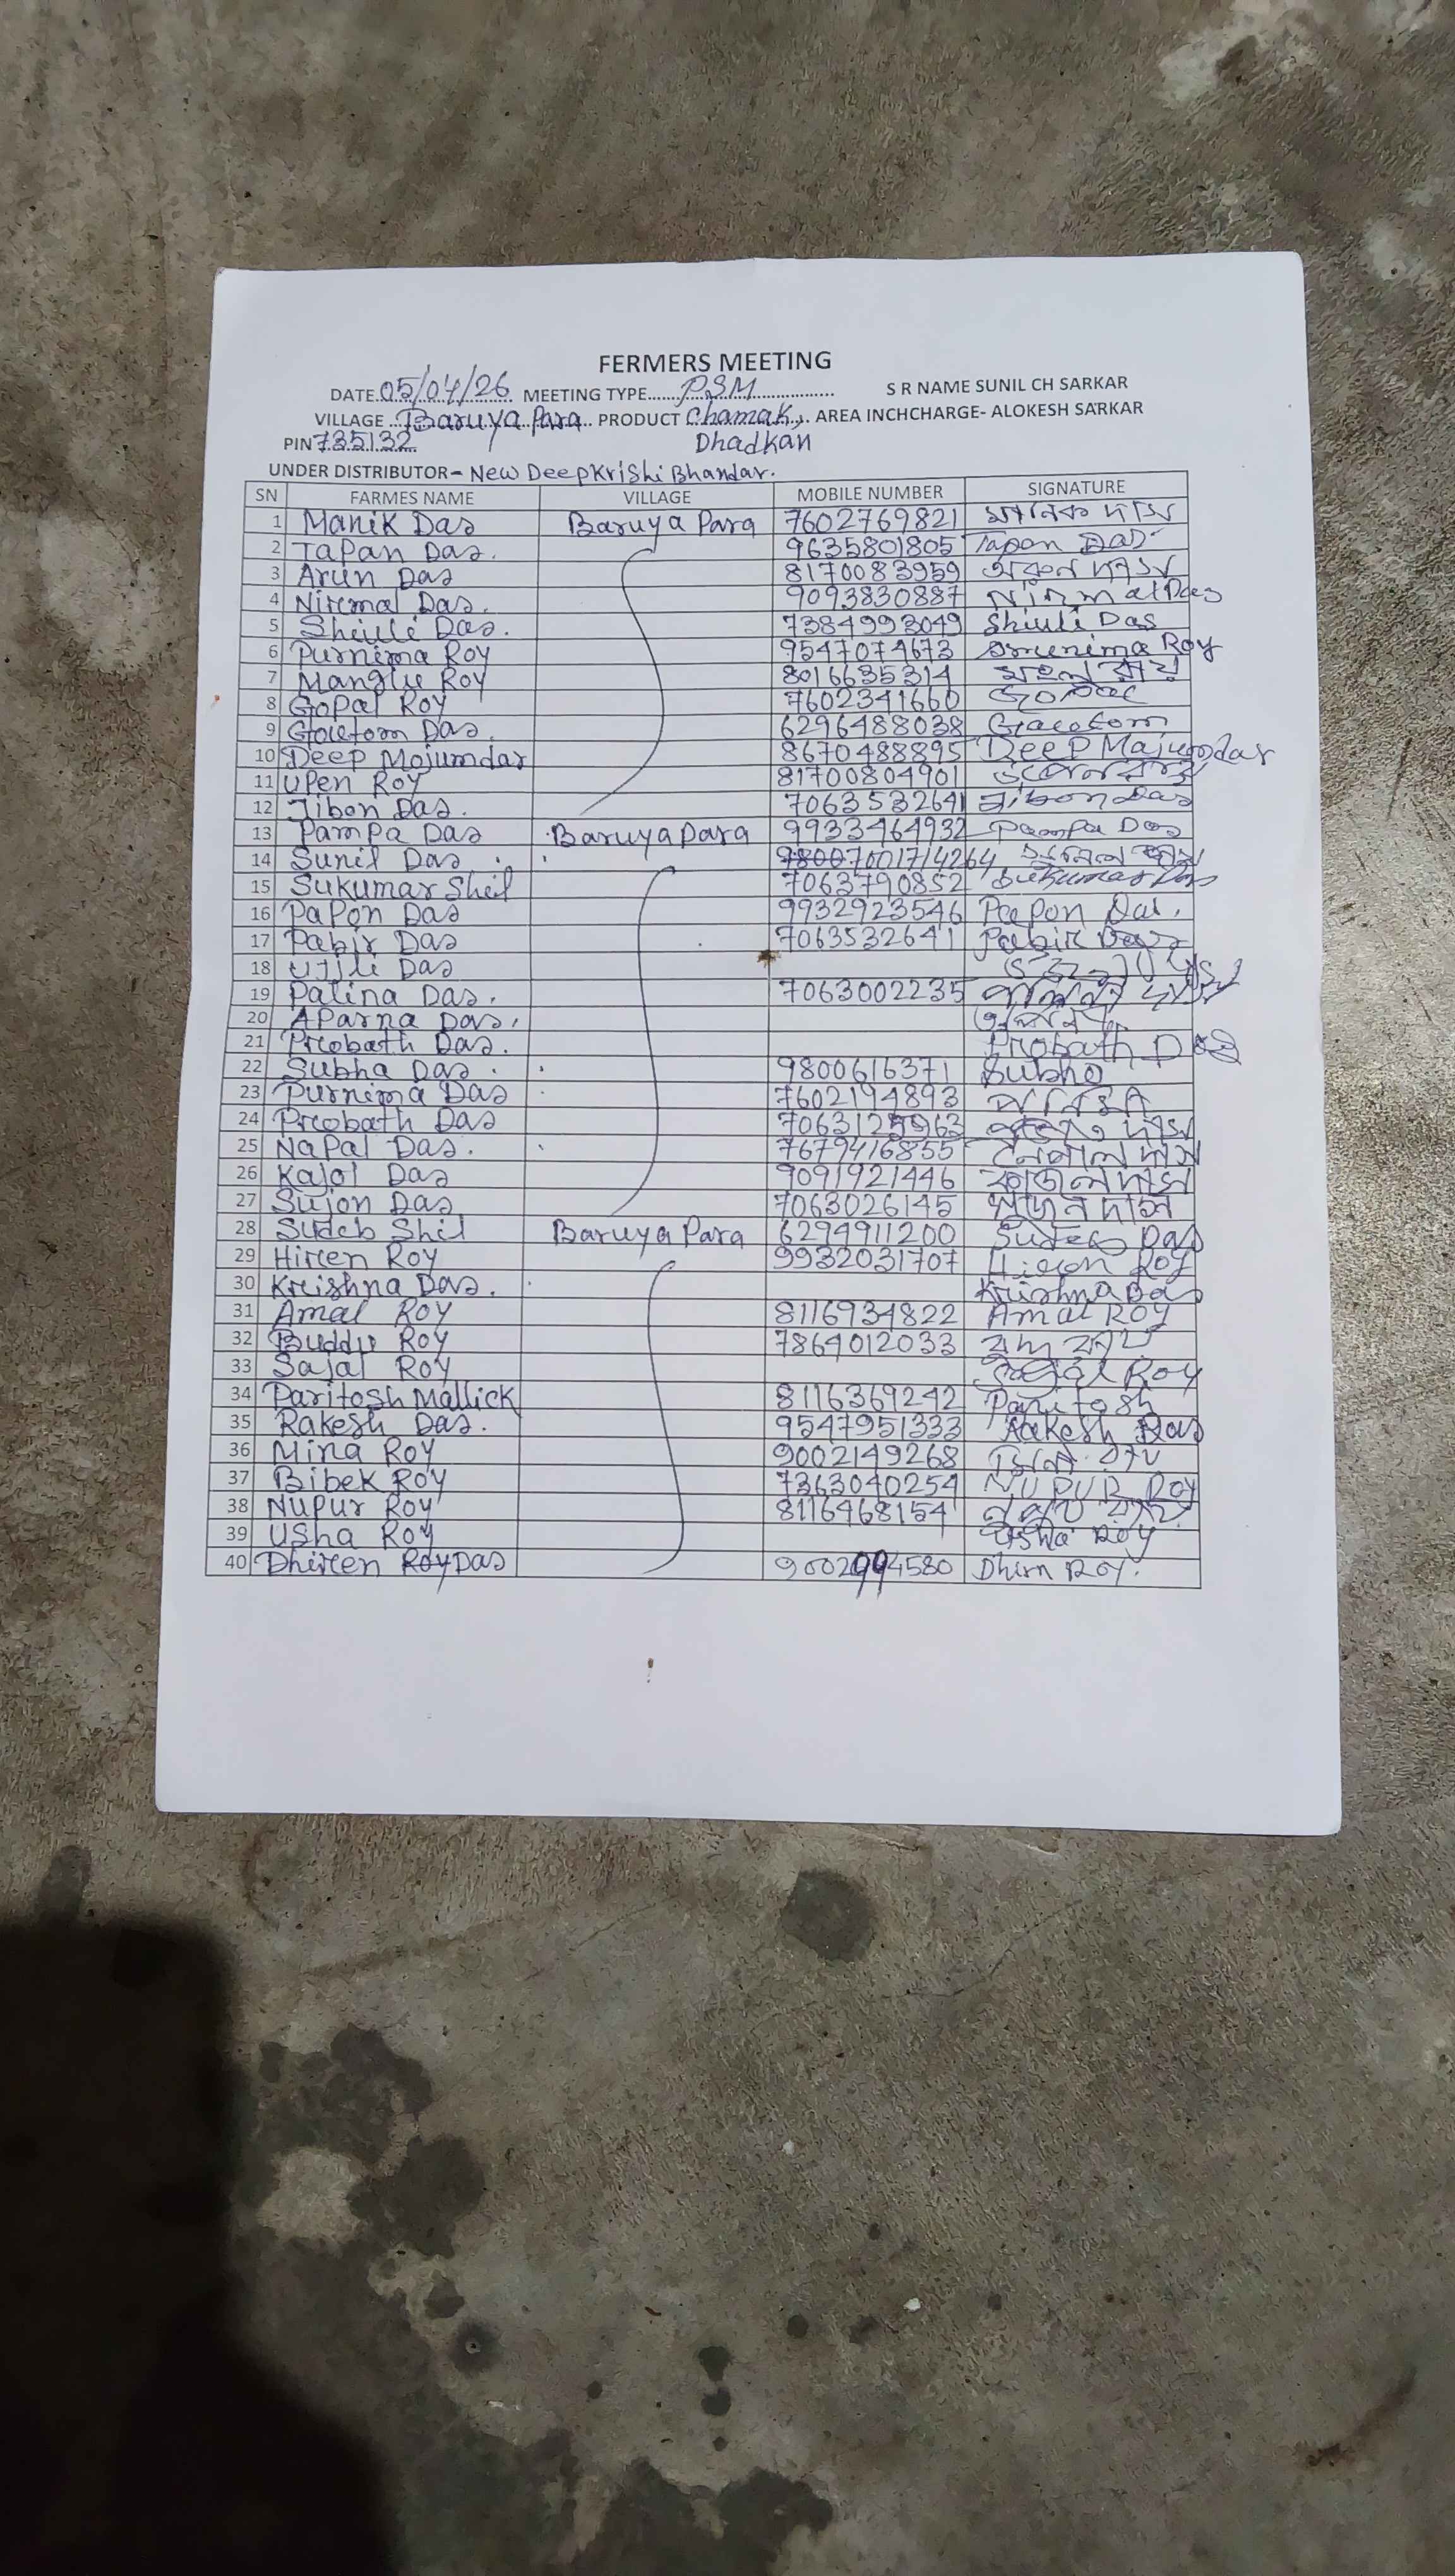 FERMERS MEETING
DATE 05/04/26 MEETING TYPE PSM S R NAME SUNIL CH SARKAR
VILLAGE Baruya Para PRODUCT Chamak, AREA INCHCHARGE- ALOKESH SARKAR
PIN 735132 Dhadkan
UNDER DISTRIBUTOR - New Deep Krishi Bhandar.
SN FARMES NAME VILLAGE MOBILE NUMBER SIGNATURE
1 Manik Das Baruya Para 7602769821 মানিক দাস
2 Tapan Das. 9635801805 Tapan Das
3 Arun Das 8170083959 অরুন দাস
4 Nirmal Das. 9093830887 Nirmal Das
5 Shiuli Das. 7384993049 Shiuli Das
6 Purnima Roy 9547074673 Roy
7 Manglu Roy 8016635314
8 Gopal Roy 7602341660
9 Goutom Das. 6296488038 Goutom
10 Deep Mojumdar 8670488895 Deep Majumdar
11 Upen Roy 81700804901
12 Jibon Das. 7063532641 Jibon Das
13 Pampa Das Baruya para 9933464932 Pampa Das
14 Sunil Das
15 Sukumar Shil 7063790852 Sukumar
16 Papon Das 9932923546 Papon Das.
17 Pabir Das 7063532641 Pabir Das
18 Ujjli Das
19 Palina Das. 7063002235
20 Aparna Das.
21 Probath Das. Probath Das
22 Subha Das 9800616371 Subho
23 Purnima Das 7602194893
24 Probath Das
25 Napal Das. 7679416855 নেপাল দাস
26 Kajol Das 9091921446 কাজল দাস
27 Sujon Das 7063026145 সুজন দাস
28 Sudeb Shil Baruya Para 6294911200 Das
29 Hiren Roy 9932031707 Hiren Roy
30 Krishna Das. Krishna Das
31 Amal Roy 8116934822 Amal Roy
32 Buddu Roy 7864012033
33 Sajal Roy Roy
34 Paritosh Mallick 8116369242 Paritosh
35 Rakesh Das. 9547951333 Rakesh Das
36 Mina Roy 9002149268
37 Bibek Roy 7363040254 NUPUR Roy
38 Nupur Roy 8116468154
39 Usha Roy Usha Roy
40 Dhiren Roy Das 9002994580 Dhirn Roy.